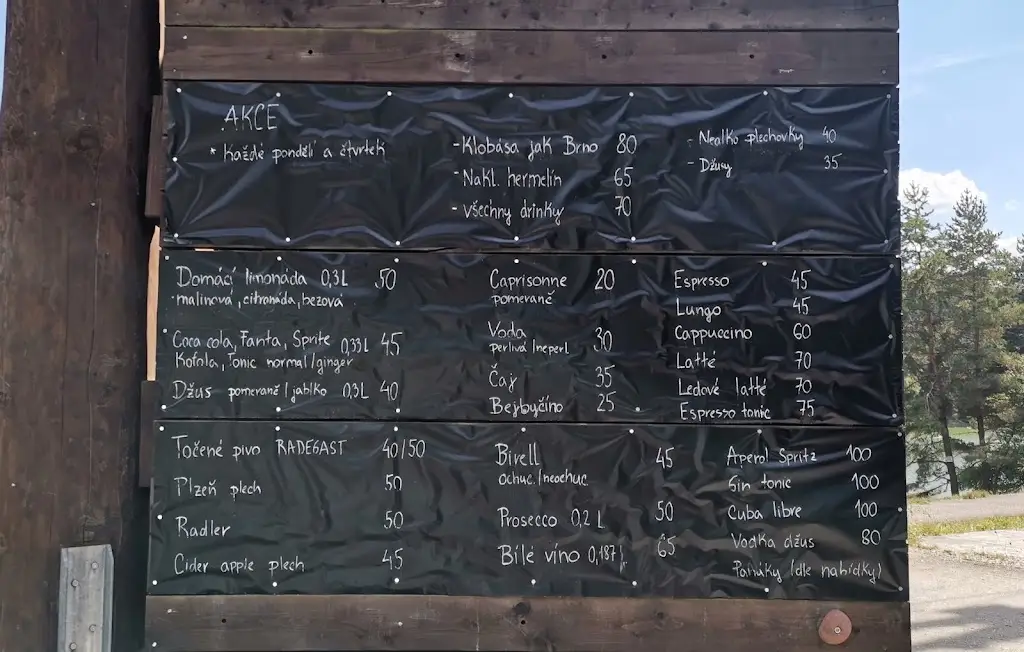 AKCE
* Každé pondělí a čtvrtek
- Klobása jak Brno 80
- Nakl. hermelín 65
- všechny drinky 70
- Nealko plechovky 40
- Džusy 35
Domácí limonáda 0,3L 50
- malinová, citronáda, bezová
Coca cola, Fanta, Sprite 0,33L 45
Kofola, Tonic normal/ginger
Džus pomeranč/jablko 0,3L 40
Caprisonne 20
pomeranč
Voda 30
perlivá/neperl.
Čaj 35
Bejbyčíno 25
Espresso 45
Lungo 45
Cappuccino 60
Latté 70
Ledové latté 70
Espresso tonic 75
Točené pivo RADEGAST 40/50
Plzeň plech 50
Radler 50
Cider apple plech 45
Birell 45
ochuc./neochuc.
Prosecco 0,2 L 50
Bílé víno 0,187 l 65
Aperol Spritz 100
Gin tonic 100
Cuba libre 100
Vodka džus 80
Panáky (dle nabídky)